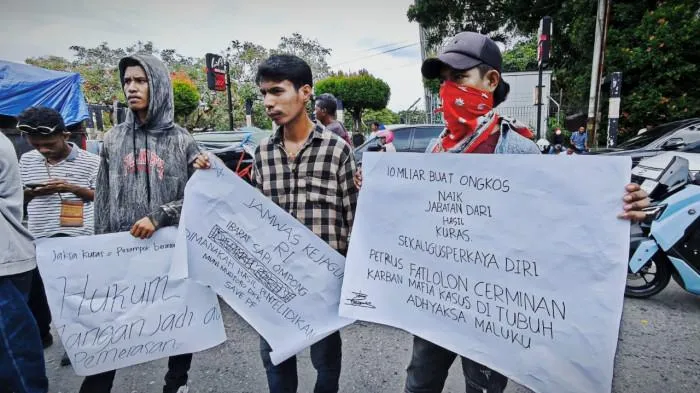 Jaksa kuras = Perampok berantai
Hukum
Jangan Jadi al
Pemerasan
JAMWAS KEJAGUNG
RI
IBARAT SAPI OMPONG
DIMANAKAH HASIL PENYELIDIKAN
SAVE PF
10 MLIAR BUAT ONGKOS
NAIK
JABATAN DARI
HASIL
KURAS.
SEKALIGUSPERKAYA DIRI
PETRUS FATLOLON CERMINAN
KARBAN MAFIA KASUS DI TUBUH
ADHYAKSA MALUKU